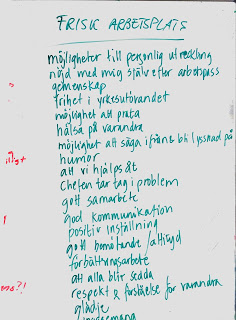 FRISK ARBETSPLATS
möjligheter till personlig utveckling
nöjd med mig själv efter arbetspass
gemenskap
frihet i yrkesutövandet
möjlighet att prata
hälsa på varandra
möjlighet att säga ifrån & bli lyssnad på
humor
att vi hjälps åt
chefen tar tag i problem
gott samarbete
god kommunikation
positiv inställning
gott bemötande/attityd
förbättringsarbete
att alla blir sedda
respekt & förståelse för varandra
glädje